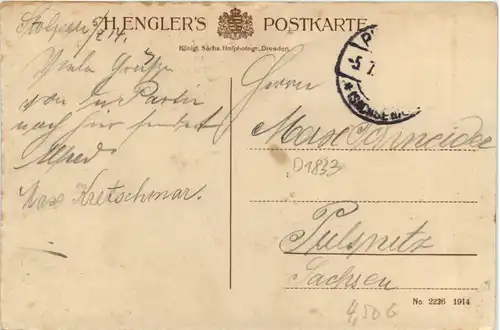 H. ENGLER'S POSTKARTE
Königl. Sächs. Hofphotogr., Dresden.
Stolpen 5/7 14.
Viele Grüße
von der Partie
nach hier sendet
Alfred
Max Kretschmar.
-5. 7.
Herrn
Max Schneider
D1833
Pulsnitz
Sachsen
No. 2226 1914
4,50 G